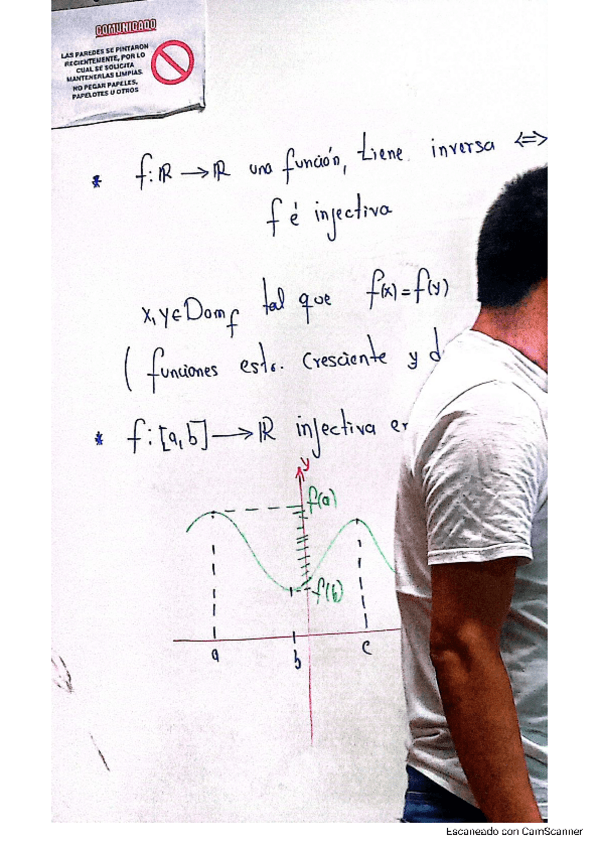 COMUNICADO
LAS PAREDES SE PINTARON
RECIENTEMENTE, POR LO
CUAL SE SOLICITA
MANTENERLAS LIMPIAS.
NO PEGAR PAPELES,
PAPELOTES U OTROS
* f: ℝ → ℝ una función, tiene inversa ⇔
f é injectiva
x, y ∈ Dom f tal que f(x) = f(y)
( funciones est. cresciente y d
* f: [a, b] → ℝ injectiva en
y
f(a)
f(b)
a b c
Escaneado con CamScanner